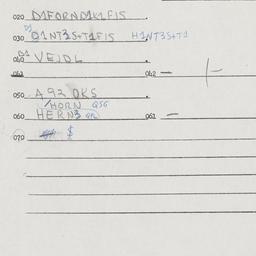 020 D1FORND1K1FIS
030 D1NT3S+T1FIS H1NT3S+T1
040 VEJDL
041 042 —
050 A 92 OKS
HORN QSG
060 HERN3 061 —
070 $